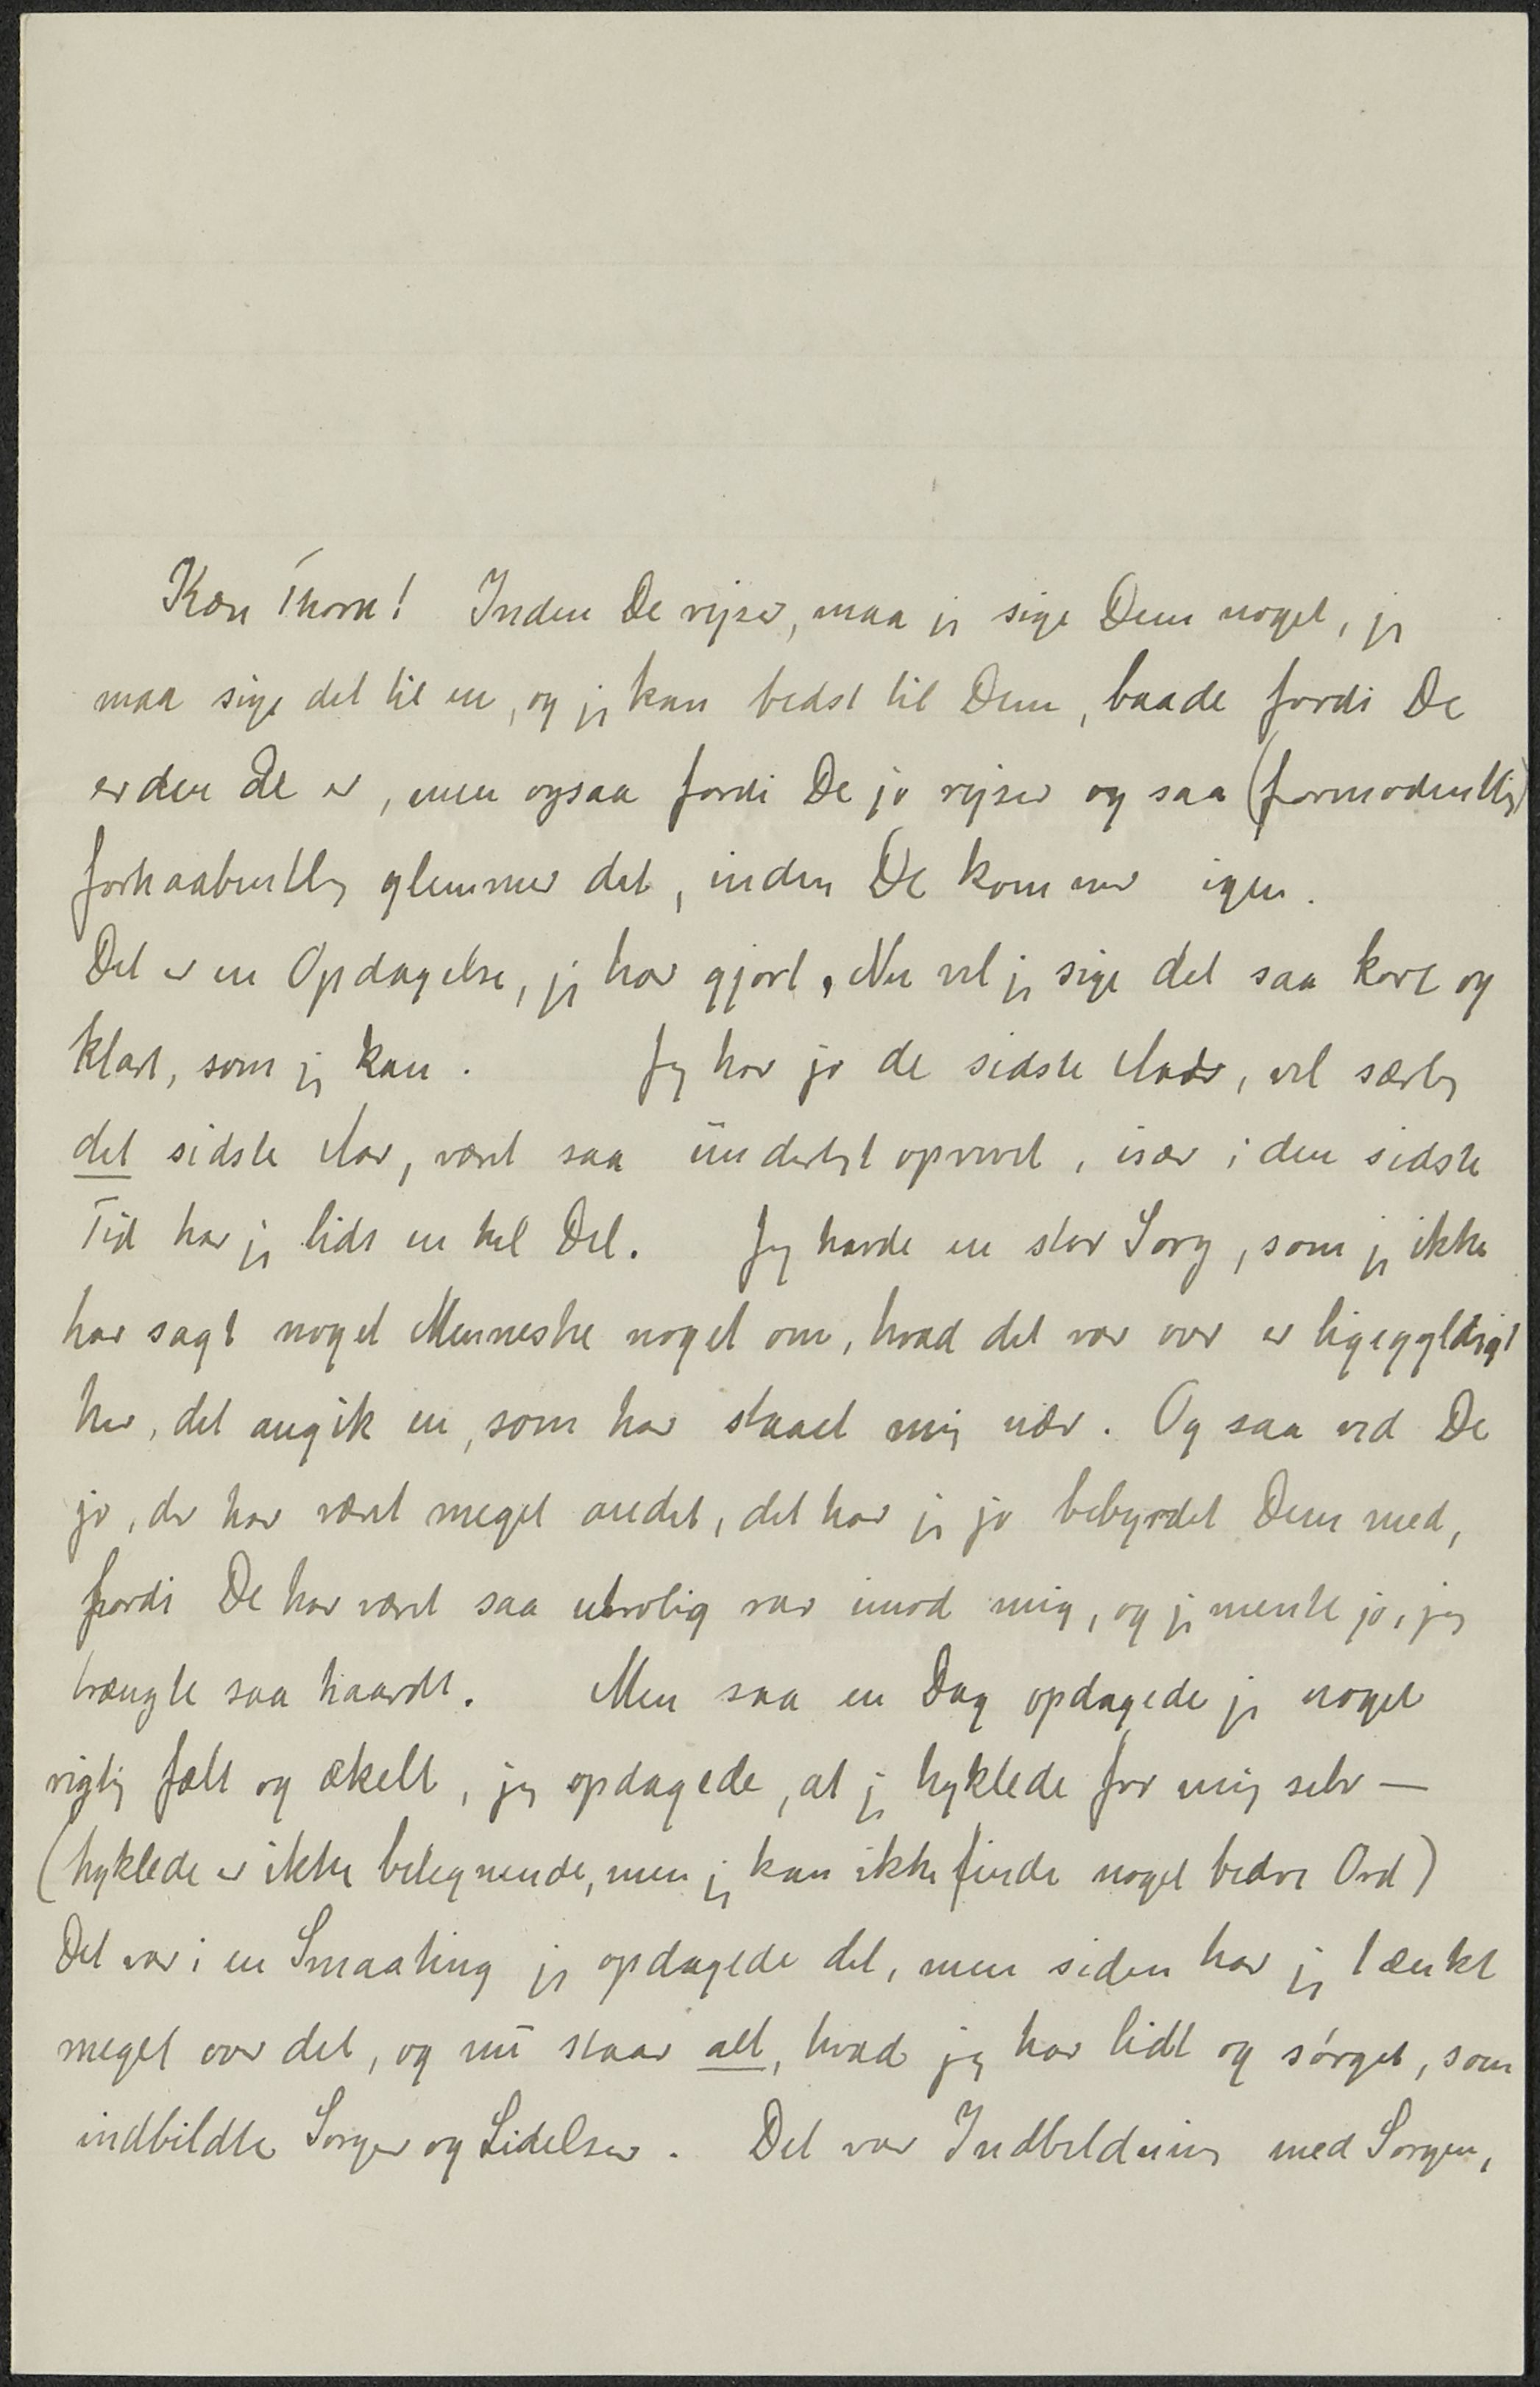 Kære Thora! Inden De rejser, maa jeg sige Dem noget, jeg
maa sige det til en, og jeg kan bedst til Dem, baade fordi De
er den De er, men ogsaa fordi De jo rejser og saa (formodentlig)
forhaabentlig glemmer det, inden De kommer igen.
Det er en Opdagelse, jeg har gjort, Nu vil jeg sige det saa kort og
klart, som jeg kan. Jeg har jo de sidste Aar, vel særlig
det sidste Aar, været saa underligt oprevet, især i den sidste
Tid har jeg lidt en hel Del. Jeg havde en stor Sorg, som jeg ikke
har sagt noget Menneske noget om, hvad det var over er ligegyldigt
her, det angik en, som har staaet mig nær. Og saa ved De
jo, der har været meget andet, det har jeg jo bebyrdet Dem med,
fordi De har været saa utrolig rar imod mig, og jeg mente jo, jeg
trængte saa haardt. Men saa en Dag opdagede jeg noget
rigtig fælt og ækelt, jeg opdagede, at jeg hyklede for mig selv —
(hyklede er ikke betegnende, men jeg kan ikke finde noget bedre Ord)
Det var i en Smaating jeg opdagede det, men siden har jeg tænkt
meget over det, og nu staar alt, hvad jeg har lidt og sørget, som
indbildte Sorger og Lidelser. Det var Indbildning med Sorgen,